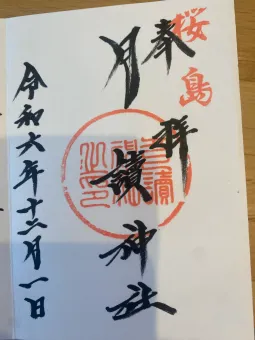 桜島
奉拝
月讀神社
令和六年十二月一日